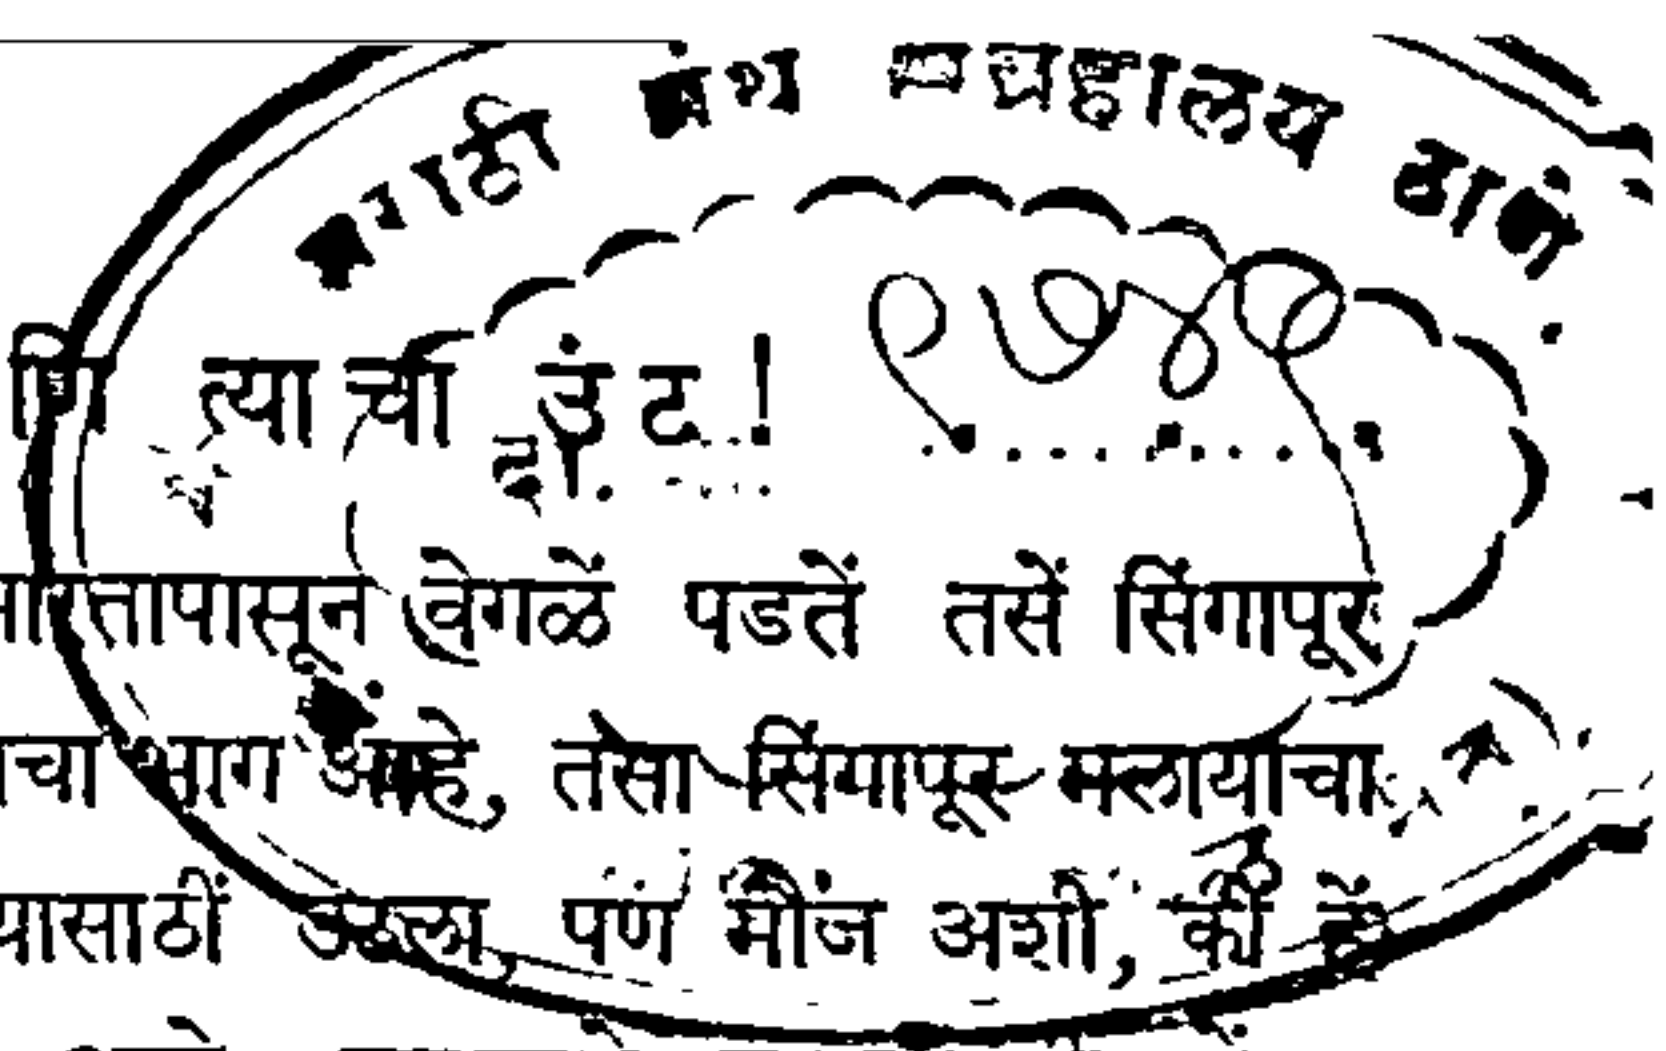 मराठी ग्रंथ संग्रहालय ठाणें.
९७४९
णि त्याचीं उंट !
भारतापासून वेगळें पडतें तसें सिंगापूर
चा भाग आहे, तसा सिंगापूर मलायाचा
यासाठीं उठला, पण मौज अशी, कीं हें